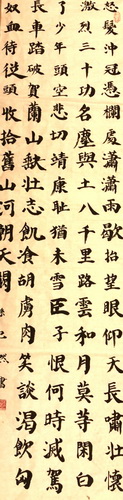 怒髮沖冠憑欄處瀟瀟雨歇抬望眼仰天長嘯壯懷
激烈三十功名塵與土八千里路雲和月莫等閒白
了少年頭空悲切靖康耻猶未雪臣子恨何時滅駕
長車踏破賀蘭山缺壯志飢食胡虜肉笑談渴飲匈
奴血待從頭收拾舊山河朝天闕